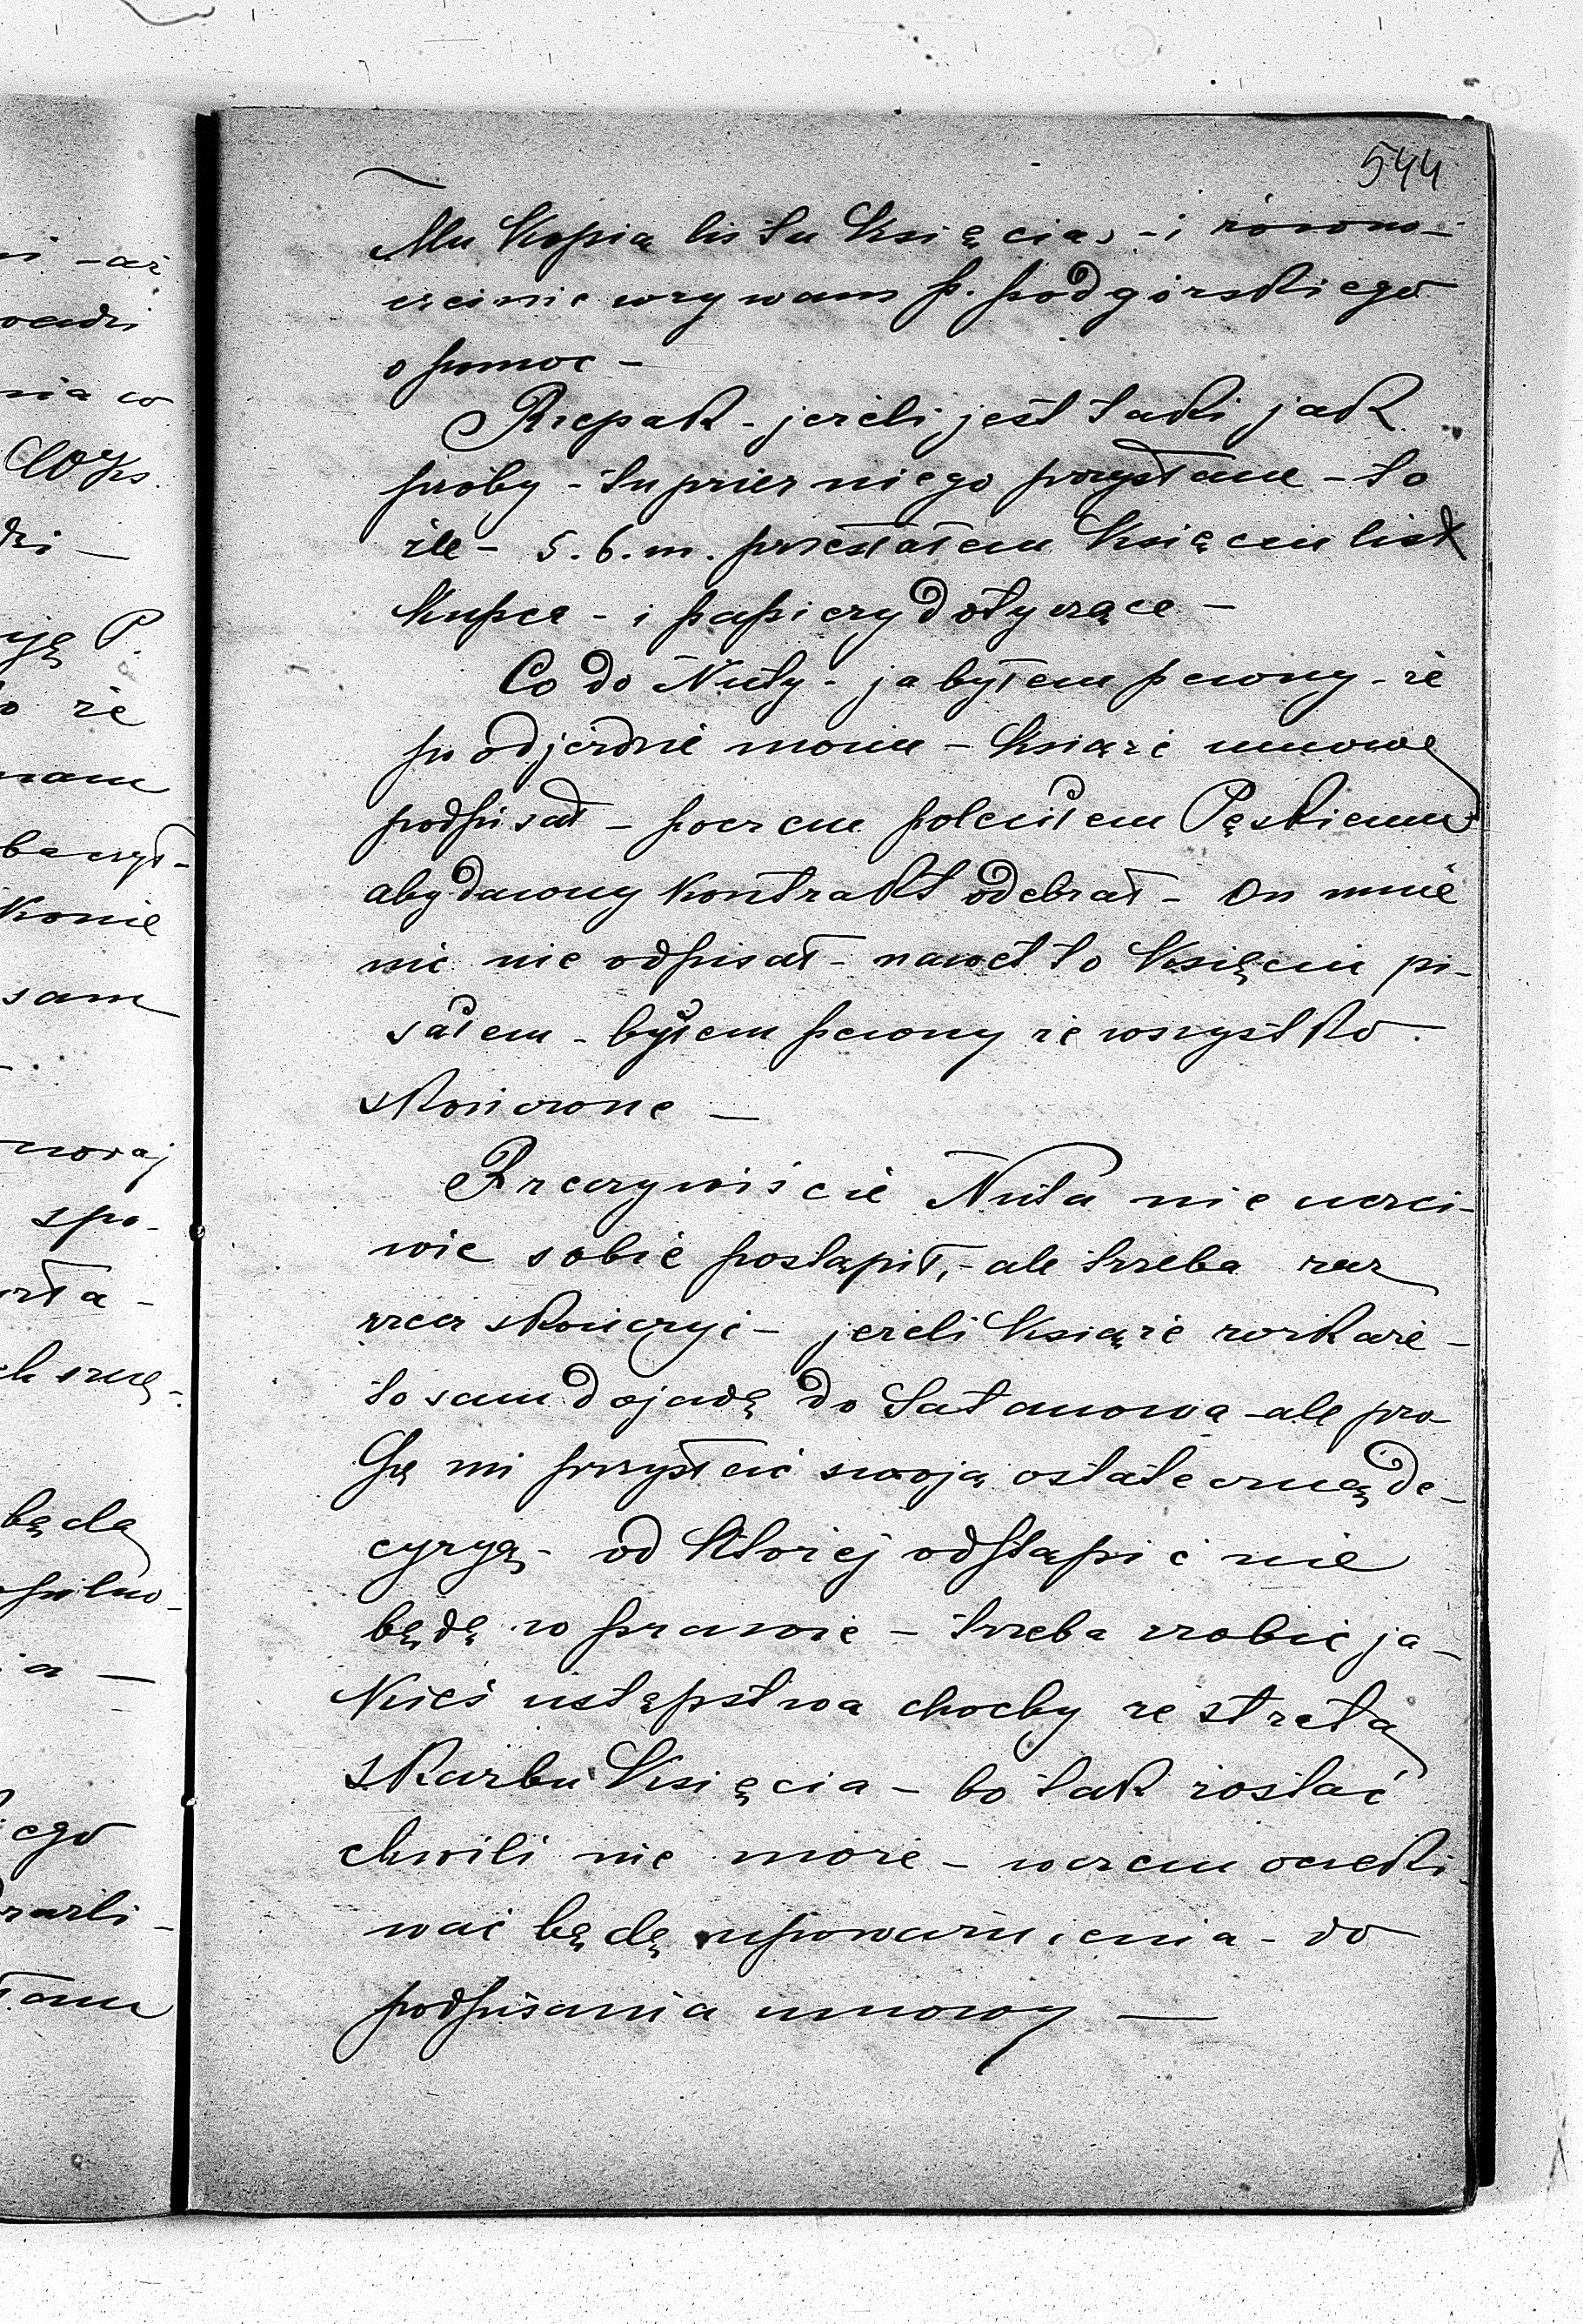 544
Mu Kopią listu Księcia, - i równo-
cześnie wzywam p. Podgórskiego
o pomoc -
Rzepak - jeżeli jest taki jak
próby - tu przez niego przysłane - to
źle - 5. b. m. przesłałem Księciu list
Kupca - i papiery dotyczące -
Co do Nuty - ja byłem pewny - że
po odjeździe moim - Książe umowę
podpisał - poczem poleciłem Pęskiemu
aby dawny Kontrakt odebrał - On mnie
nic nie odpisał - nawet to Księciu pi-
sałem - byłem pewny że wszystko
skończone -
Rzeczywiście Nuta nie uczci-
wie sobie postąpił, - ale trzeba raz
rzecz skończyć - jeżeli Książe rozkaże -
to sam dojadę do Satanowa - ale pro-
szę mi przysłać swoją ostateczną de-
cyzyą - od Której odstąpić nie
będę w prawie - trzeba zrobić ja-
Kieś ustępstwa choćby ze stratą
skarbu Księcia - bo tak zostać
chwili nie może - wczem oczeki
wać będę upoważnienia - do
podpisania umowy -
ni - aż
nia co
W Ks.
ję P.
że
baczył -
Konie
sam
spo-
będą
ego